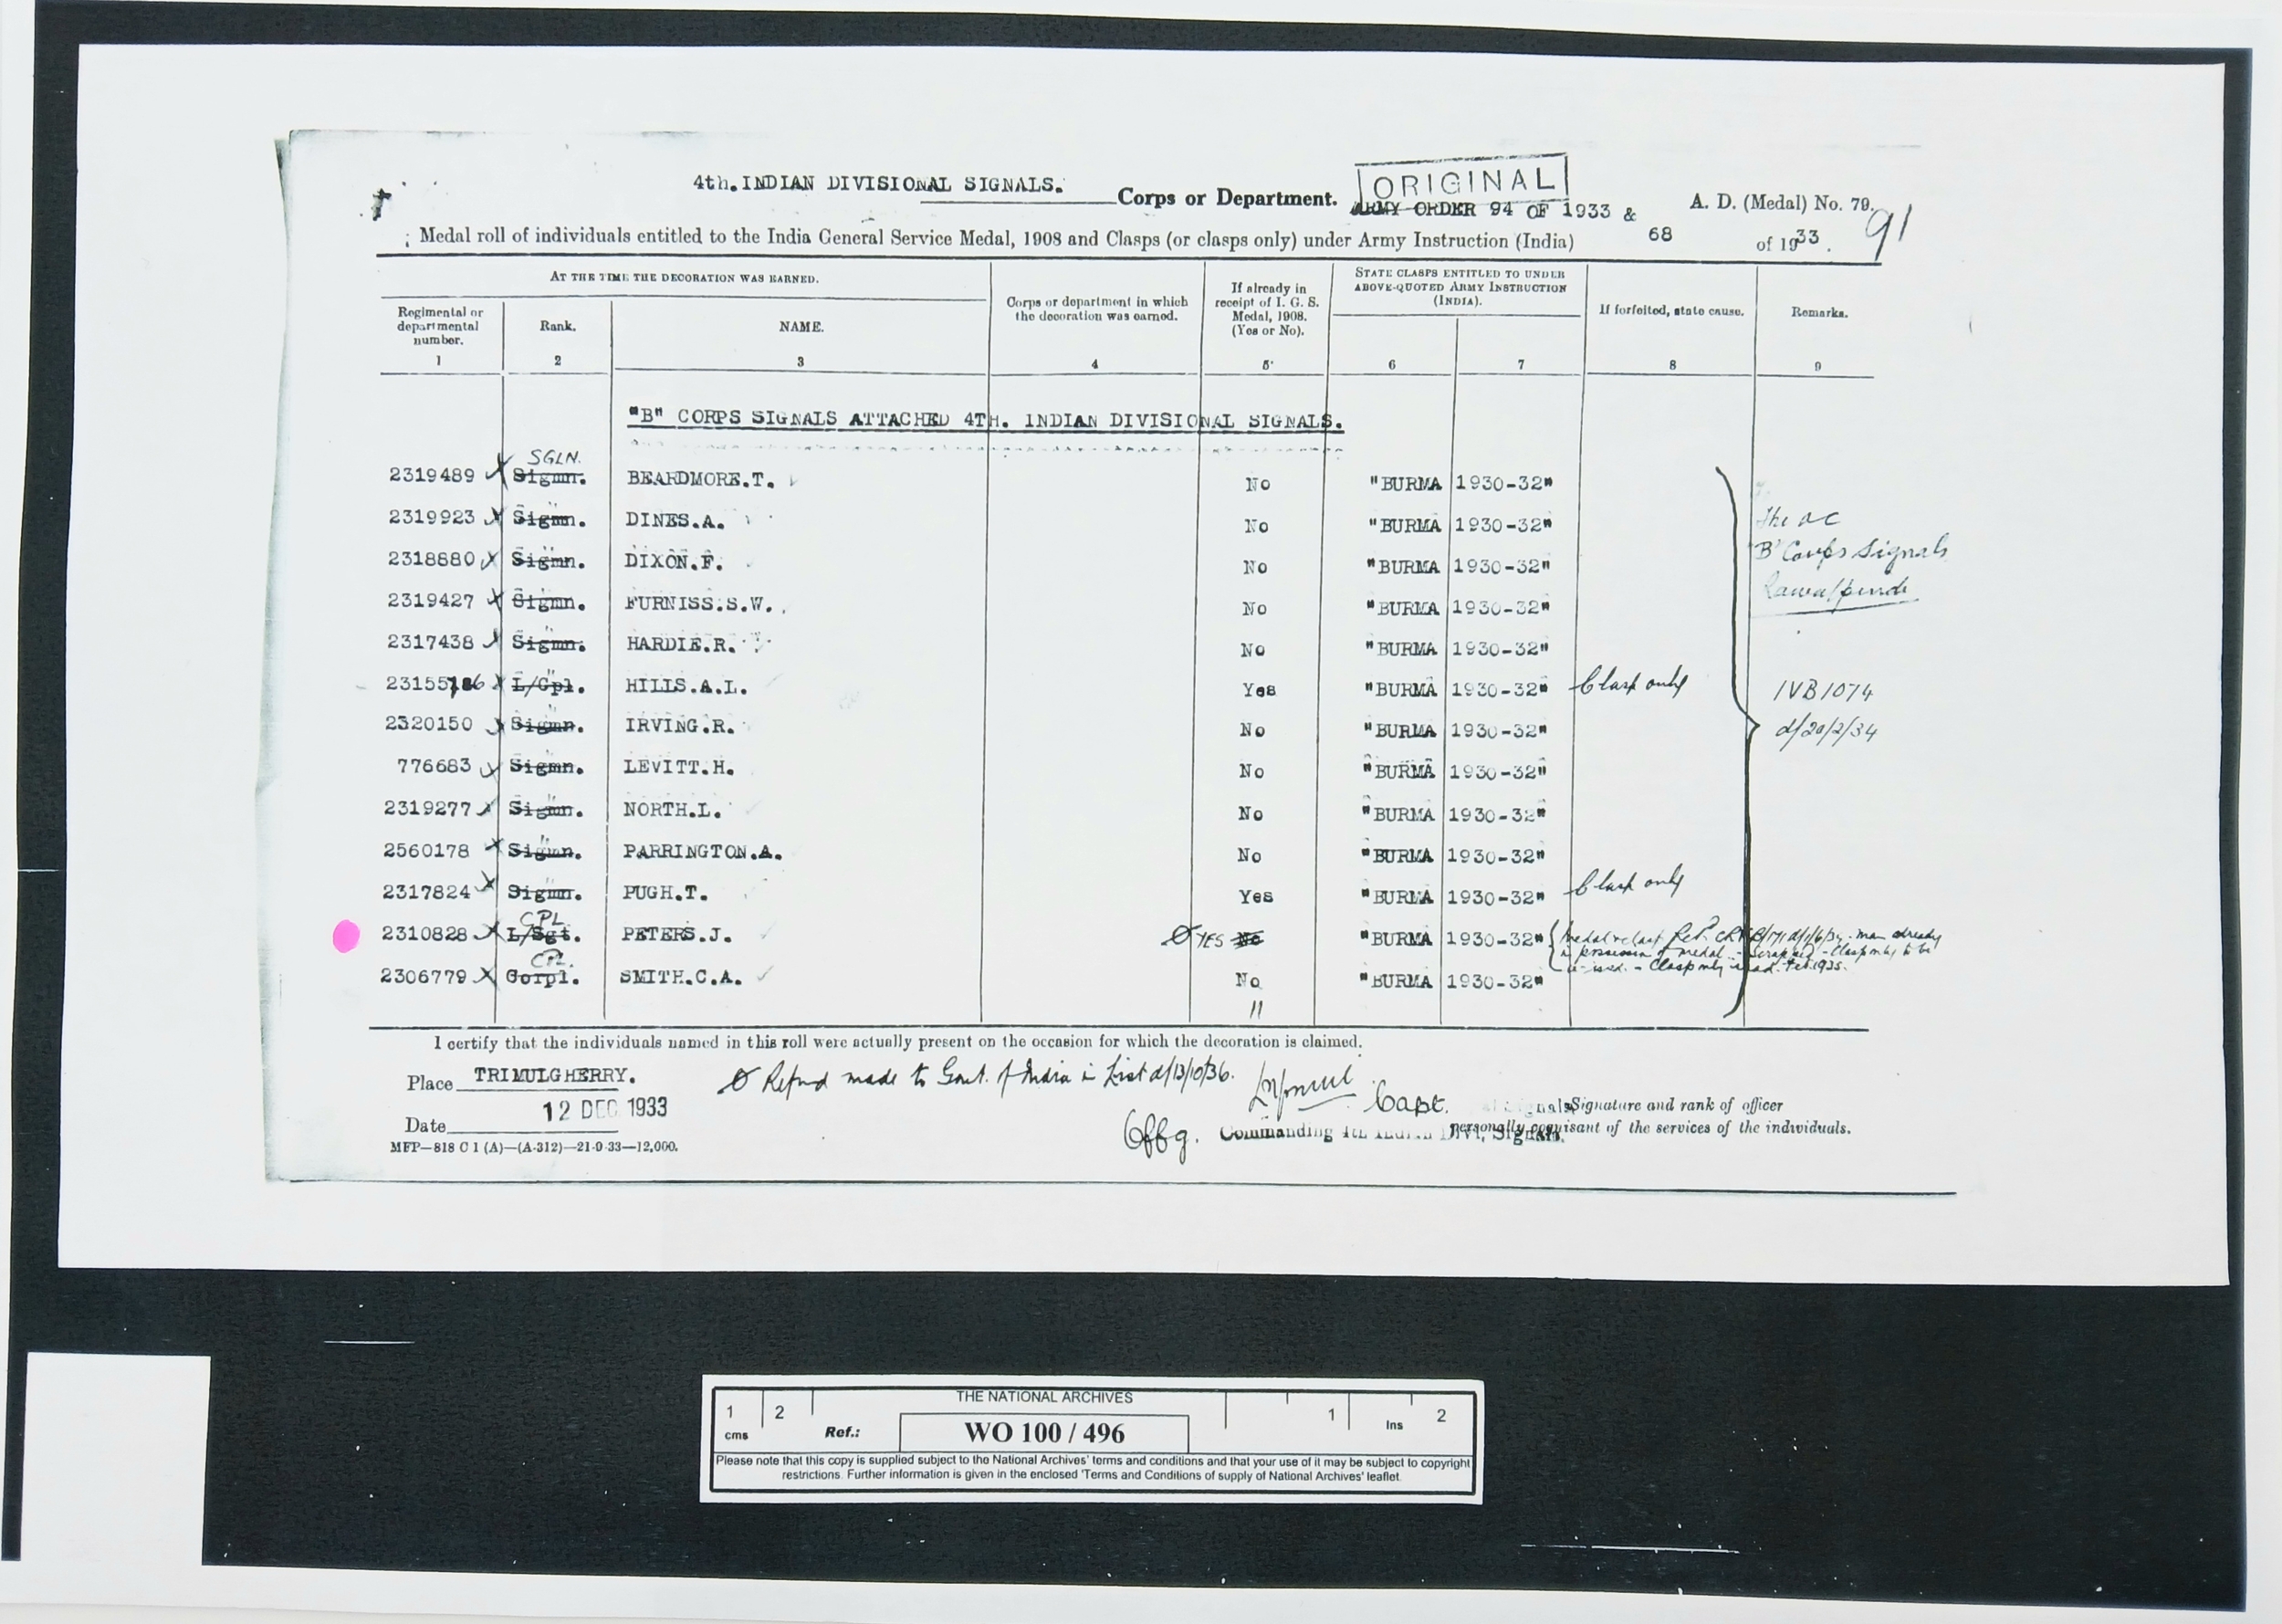 4th. INDIAN DIVISIONAL SIGNALS. Corps or Department.
ORIGINAL
ARMY ORDER 94 OF 1933 &
A. D. (Medal) No. 79.
91
Medal roll of individuals entitled to the India General Service Medal, 1908 and Clasps (or clasps only) under Army Instruction (India) 68 of 1933.
AT THE TIME THE DECORATION WAS EARNED.
Regimental or departmental number.
Rank.
NAME.
Corps or department in which the decoration was earned.
If already in receipt of I. G. S. Medal, 1908. (Yes or No).
STATE CLASPS ENTITLED TO UNDER ABOVE-QUOTED ARMY INSTRUCTION (INDIA).
If forfeited, state cause.
Remarks.
1 2 3 4 5 6 7 8 9
"B" CORPS SIGNALS ATTACHED 4TH. INDIAN DIVISIONAL SIGNALS.
SGLN.
2319489 Sigmn. BEARDMORE.T. No "BURMA 1930-32"
2319923 Sigmn. DINES.A. No "BURMA 1930-32" The OC
2318880 Sigmn. DIXON.F. No "BURMA 1930-32" 'B' Corps Signals
2319427 Sigmn. FURNISS.S.W. No "BURMA 1930-32" Rawalpindi
2317438 Sigmn. HARDIE.R. No "BURMA 1930-32"
23155 L/Cpl. HILLS.A.L. Yes "BURMA 1930-32" Clasp only IVB1074
2320150 Sigmn. IRVING.R. No "BURMA 1930-32" d/20/2/34
776683 Sigmn. LEVITT.H. No "BURMA 1930-32"
2319277 Sigmn. NORTH.L. No "BURMA 1930-32"
2560178 Sigmn. PARRINGTON.A. No "BURMA 1930-32"
2317824 Sigmn. PUGH.T. Yes "BURMA 1930-32" Clasp only
CPL
2310828 L/Sgt. PETERS.J. Ø YES No "BURMA 1930-32" Medal & clasp man already
in possession of medal - Scrapped - Clasp only to be
issued. - Clasp only Feb 1935.
CPL.
2306779 Corpl. SMITH.C.A. No "BURMA 1930-32"
11
I certify that the individuals named in this roll were actually present on the occasion for which the decoration is claimed.
Place TRIMULGHERRY.
Ø Refund made to Govt. of India in List d/13/10/36.
Capt.
Signature and rank of officer
Date 12 DEC 1933
Offg. Commanding 4th Indian Divl. Signals.
personally cognisant of the services of the individuals.
MFP—818 C 1 (A)—(A-312)—21-9-33—12,000.
THE NATIONAL ARCHIVES
1 2 1 2
cms Ref.: WO 100 / 496 Ins
Please note that this copy is supplied subject to the National Archives' terms and conditions and that your use of it may be subject to copyright
restrictions. Further information is given in the enclosed 'Terms and Conditions of supply of National Archives' leaflet.